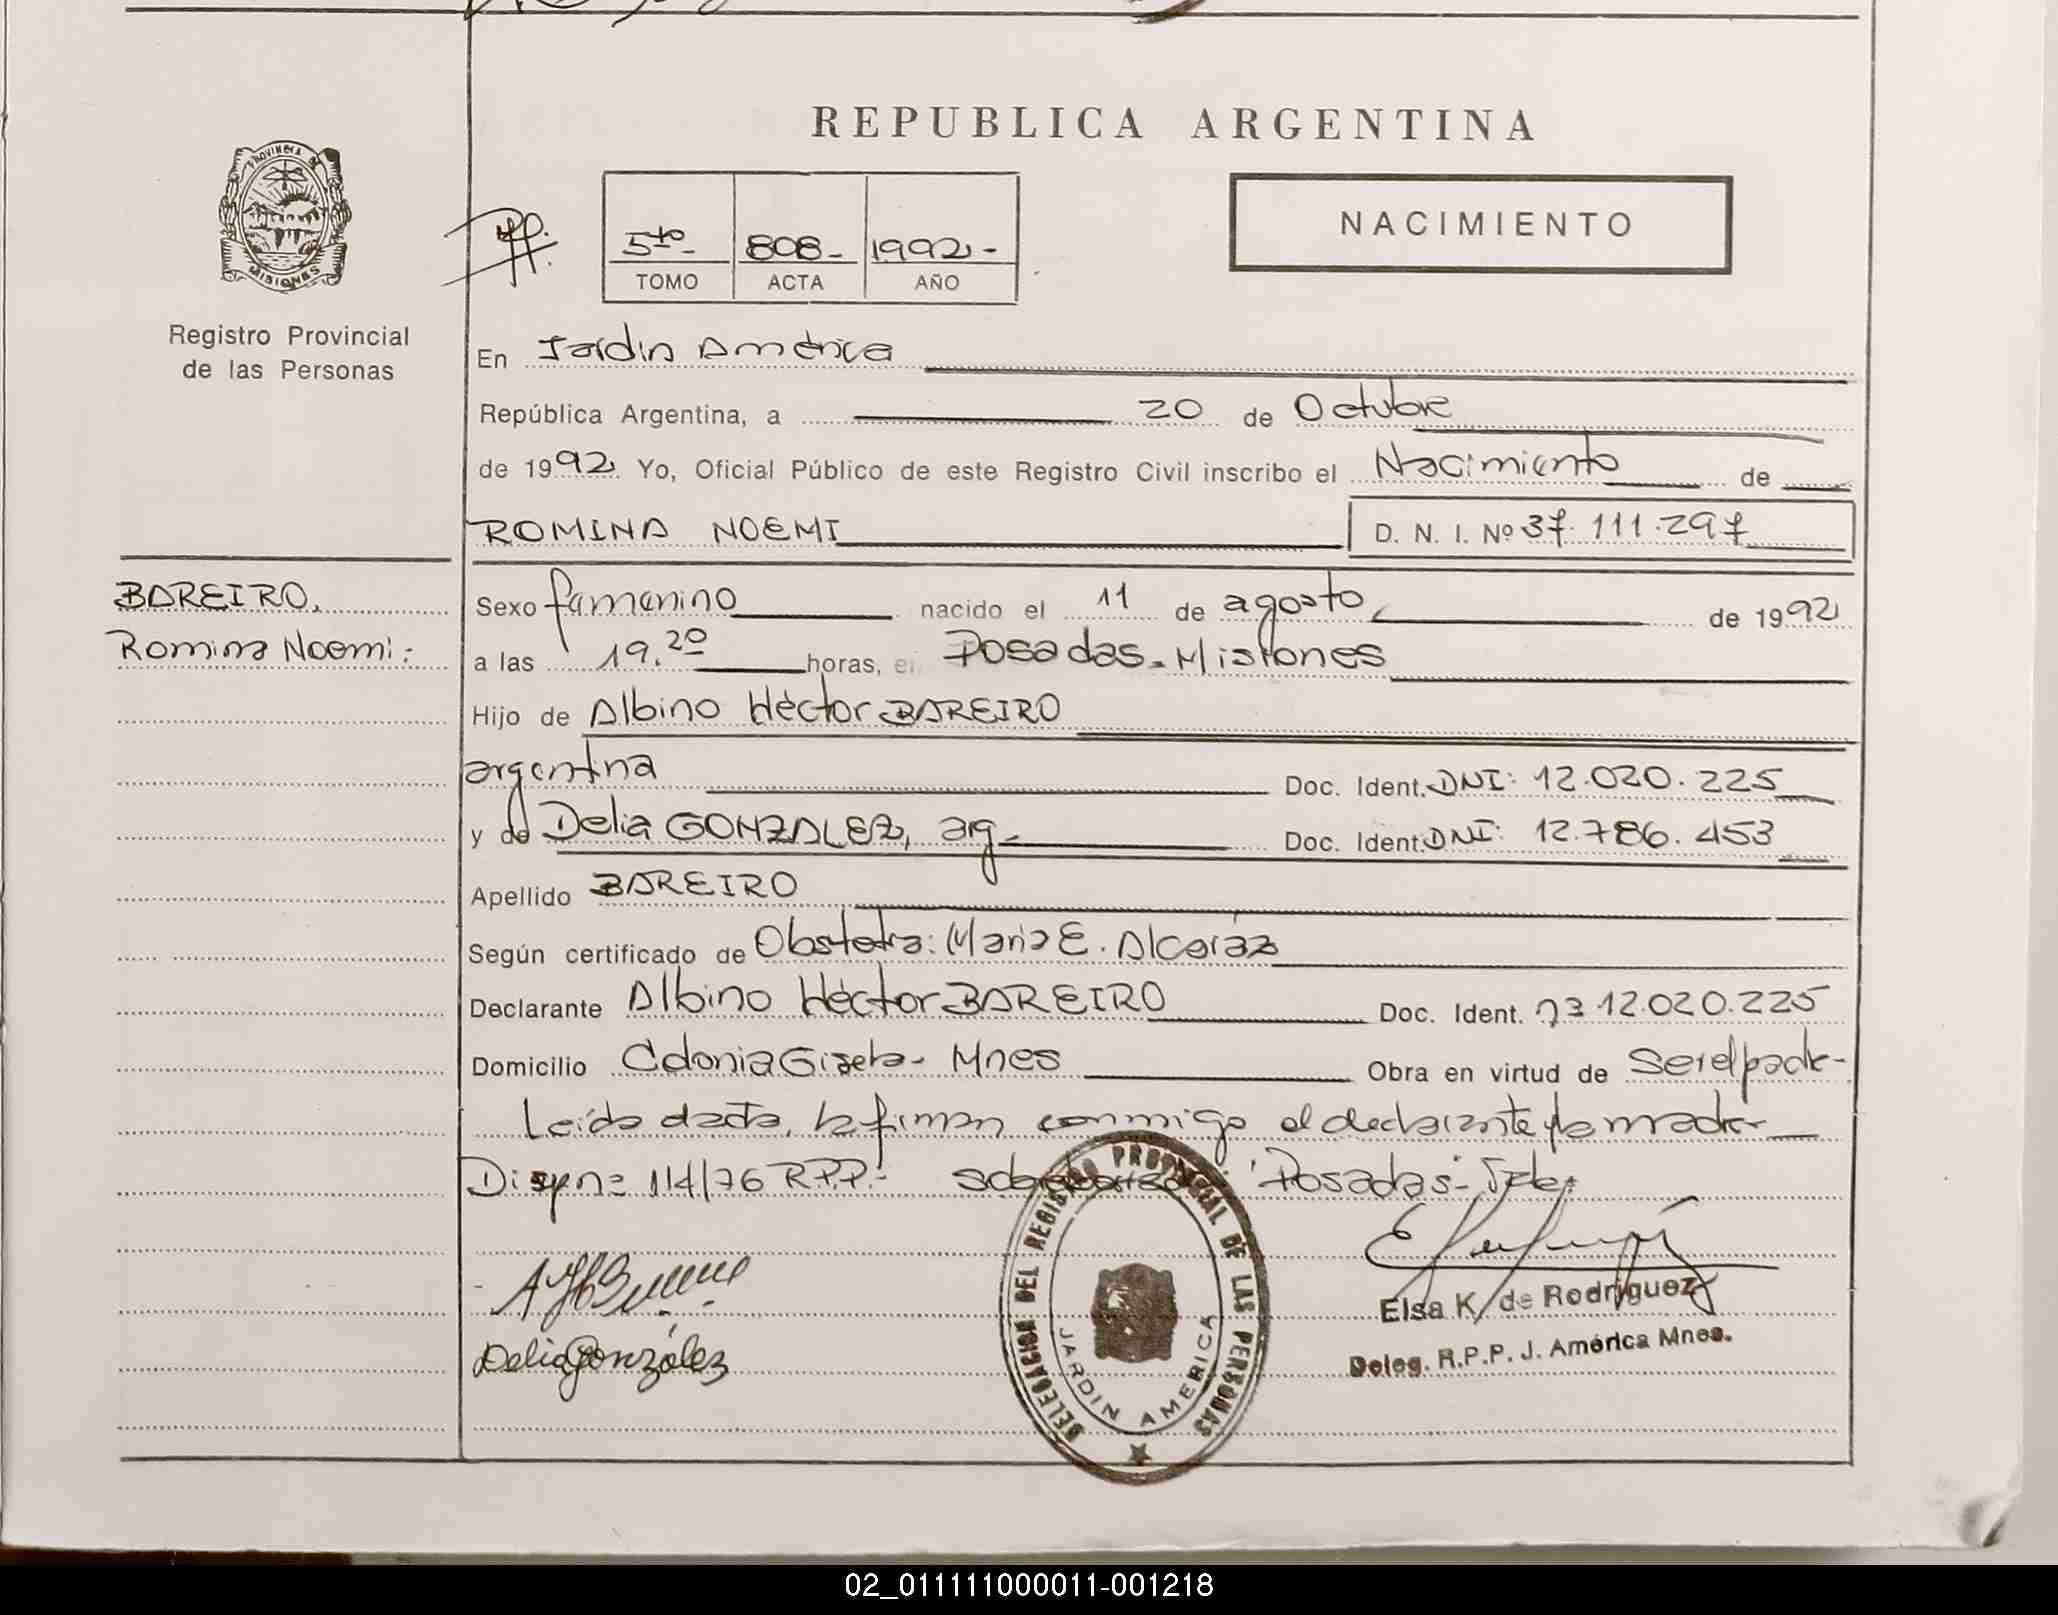 REPUBLICA ARGENTINA
PROVINCIA DE MISIONES
Registro Provincial
de las Personas
5to - 808 - 1992 -
TOMO ACTA AÑO
NACIMIENTO
En Jardín América
República Argentina, a 20 de Octubre
de 1992 Yo, Oficial Público de este Registro Civil inscribo el Nacimiento de
ROMINA NOEMI D. N. I. Nº 37.111.297
BAREIRO,
Romina Noemi:
Sexo femenino nacido el 11 de agosto, de 1992
a las 19.20 horas, en Posadas - Misiones
Hijo de Albino Héctor BAREIRO
argentina Doc. Ident. DNI: 12.020.225
y de Delia GONZALEZ, arg. Doc. Ident. DNI: 12.786.453
Apellido BAREIRO
Según certificado de Obstetra: Maria E. Alcaráz
Declarante Albino Héctor BAREIRO Doc. Ident. 12.020.225
Domicilio Colonia Gisela - Mnes Obra en virtud de Ser el padre -
Leída el acta, la firman conmigo el declarante y la madre
114/76 R.P.P. - "Posadas"
Delia González
Elsa K. de Rodriguez
Deleg. R.P.P. J. América Mnes.
DELEGACION DEL REGISTRO PROVINCIAL DE LAS PERSONAS
JARDIN AMERICA
02_011111000011-001218